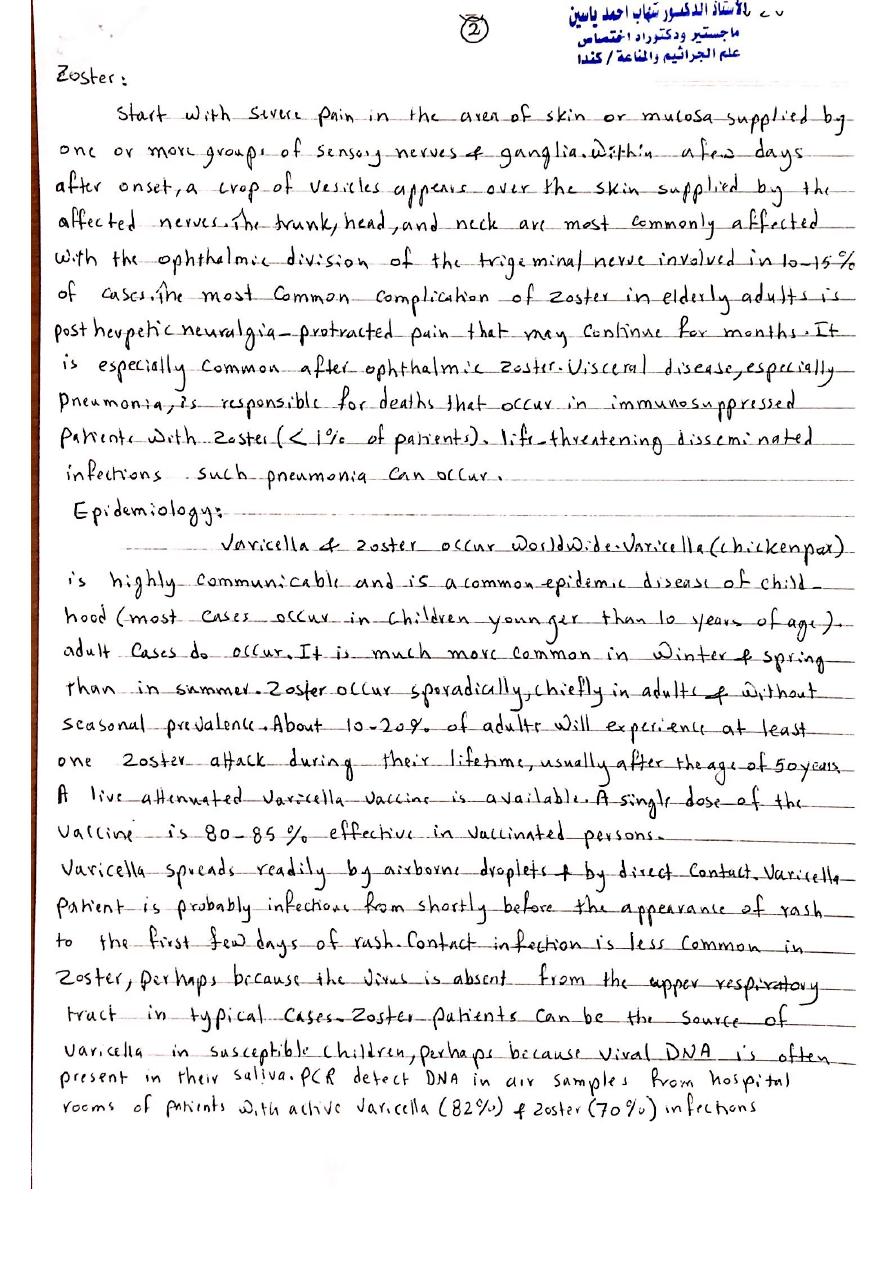 2
الأستاذ الدكتور شهاب احمد ياسين
ماجستير ودكتوراه اختصاص
علم الجراثيم والمناعة / كندا
Zoster:
Start with severe pain in the area of skin or mucosa supplied by
one or more groups of sensory nerves & ganglia. Within a few days
after onset, a crop of vesicles appears over the skin supplied by the
affected nerves. The trunk, head, and neck are most commonly affected
with the ophthalmic division of the trigeminal nerve involved in 10-15%
of cases. The most common complication of zoster in elderly adults is
post herpetic neuralgia - protracted pain that may continue for months. It
is especially common after ophthalmic zoster. Visceral disease, especially
pneumonia, is responsible for deaths that occur in immunosuppressed
patients with zoster (<1% of patients). life-threatening disseminated
infections such pneumonia can occur.
Epidemiology:
Varicella & zoster occur worldwide. Varicella (chickenpox)
is highly communicable and is a common epidemic disease of child-
hood (most cases occur in children younger than 10 years of age).
adult cases do occur. It is much more common in winter & spring
than in summer. Zoster occur sporadically, chiefly in adults & without
seasonal prevalence. About 10-20% of adults will experience at least
one zoster attack during their lifetime, usually after the age of 50 years
A live attenuated varicella vaccine is available. A single dose of the
vaccine is 80-85% effective in vaccinated persons.
Varicella spreads readily by airborne droplets & by direct contact. Varicella
patient is probably infectious from shortly before the appearance of rash
to the first few days of rash. Contact infection is less common in
zoster, perhaps because the virus is absent from the upper respiratory
tract in typical cases. Zoster patients can be the source of
varicella in susceptible children, perhaps because viral DNA is often
present in their saliva. PCR detect DNA in air samples from hospital
rooms of patients with active varicella (82%) & zoster (70%) infections